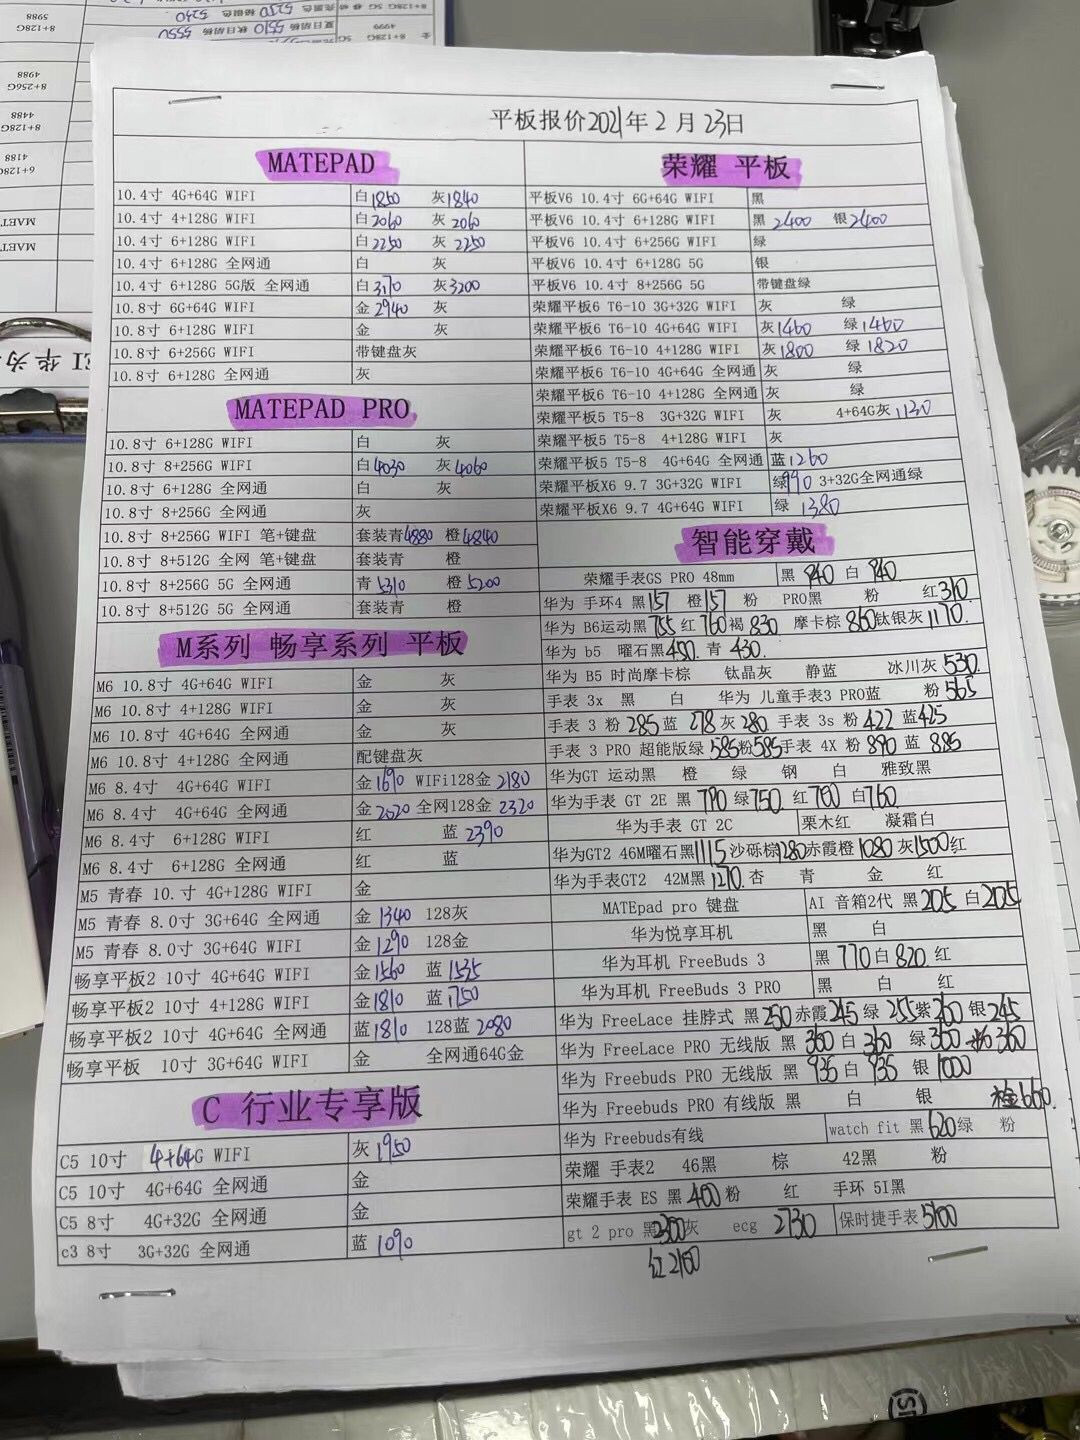 平板报价2021年2月23日
MATEPAD
10.4寸 4G+64G WIFI 白1850 灰1840
10.4寸 4+128G WIFI 白2060 灰2060
10.4寸 6+128G WIFI 白2250 灰2250
10.4寸 6+128G 全网通 白 灰
10.4寸 6+128G 5G版 全网通 白3170 灰3200
10.8寸 6G+64G WIFI 金2940 灰
10.8寸 6+128G WIFI 金 灰
10.8寸 6+256G WIFI 带键盘灰
10.8寸 6+128G 全网通 灰
MATEPAD PRO
10.8寸 6+128G WIFI 白 灰
10.8寸 8+256G WIFI 白4030 灰4060
10.8寸 6+128G 全网通 白 灰
10.8寸 8+256G 全网通 灰
10.8寸 8+256G WIFI 笔+键盘 套装青4880 橙4840
10.8寸 8+512G 全网 笔+键盘 套装青 橙
10.8寸 8+256G 5G 全网通 青5310 橙5200
10.8寸 8+512G 5G 全网通 套装青 橙
M系列 畅享系列 平板
M6 10.8寸 4G+64G WIFI 金 灰
M6 10.8寸 4+128G WIFI 金 灰
M6 10.8寸 4G+64G 全网通 金 灰
M6 10.8寸 4+128G 全网通 配键盘灰
M6 8.4寸 4G+64G WIFI 金1690 WIFi128金2180
M6 8.4寸 4G+64G 全网通 金2020 全网128金2320
M6 8.4寸 6+128G WIFI 红 蓝2390
M6 8.4寸 6+128G 全网通 红 蓝
M5 青春 10.寸 4G+128G WIFI 金
M5 青春 8.0寸 3G+64G 全网通 金1340 128灰
M5 青春 8.0寸 3G+64G WIFI 金1290 128金
畅享平板2 10寸 4G+64G WIFI 金1560 蓝1535
畅享平板2 10寸 4+128G WIFI 金1810 蓝1750
畅享平板2 10寸 4G+64G 全网通 蓝1810 128蓝2080
畅享平板 10寸 3G+64G WIFI 金 全网通64G金
C 行业专享版
C5 10寸 4+64G WIFI 灰1950
C5 10寸 4G+64G 全网通 金
C5 8寸 4G+32G 全网通 金
c3 8寸 3G+32G 全网通 蓝1090
荣耀 平板
平板V6 10.4寸 6G+64G WIFI 黑
平板V6 10.4寸 6+128G WIFI 黑2400 银2400
平板V6 10.4寸 6+256G WIFI 绿
平板V6 10.4寸 6+128G 5G 银
平板V6 10.4寸 8+256G 5G 带键盘绿
荣耀平板6 T6-10 3G+32G WIFI 灰 绿
荣耀平板6 T6-10 4G+64G WIFI 灰1460 绿1460
荣耀平板6 T6-10 4+128G WIFI 灰1800 绿1820
荣耀平板6 T6-10 4G+64G 全网通 灰 绿
荣耀平板6 T6-10 4+128G 全网通 灰 绿
荣耀平板5 T5-8 3G+32G WIFI 灰 4+64G灰1130
荣耀平板5 T5-8 4+128G WIFI 灰
荣耀平板5 T5-8 4G+64G 全网通 蓝1260
荣耀平板X6 9.7 3G+32G WIFI 绿990 3+32G全网通绿
荣耀平板X6 9.7 4G+64G WIFI 绿 1380
智能穿戴
荣耀手表GS PRO 48mm 黑 840 白 840
华为 手环4 黑157 橙157 粉 PRO黑 粉 红310
华为 B6运动黑755 红760褐830 摩卡棕860钛银灰1170
华为 b5 曜石黑490 青 430
华为 B5 时尚摩卡棕 钛晶灰 静蓝 冰川灰530
手表 3x 黑 白 华为 儿童手表3 PRO蓝 粉565
手表 3 粉285蓝 278灰280 手表 3s 粉422 蓝425
手表 3 PRO 超能版绿585粉585手表 4X 粉890 蓝885
华为GT 运动黑 橙 绿 钢 白 雅致黑
华为手表 GT 2E 黑 790 绿750 红760 白760
华为手表 GT 2C 栗木红 凝霜白
华为GT2 46M曜石黑1115沙砾棕1280赤霞橙1080灰1500红
华为手表GT2 42M黑1210 杏 青 金 红
MATEpad pro 键盘 AI 音箱2代 黑205 白205
华为悦享耳机 黑 白
华为耳机 FreeBuds 3 黑 770白820 红
华为耳机 FreeBuds 3 PRO 黑 白 红
华为 FreeLace 挂脖式 黑250赤霞245绿 255紫260银245
华为 FreeLace PRO 无线版 黑 360白 360 绿360 360
华为 Freebuds PRO 无线版 黑 935白 935 银 1000
华为 Freebuds PRO 有线版 黑 白 银 660
华为 Freebuds有线 watch fit 黑620绿 粉
荣耀 手表2 46黑 棕 42黑 粉
荣耀手表 ES 黑400粉 红 手环 5I黑
gt 2 pro 黑2300灰 ecg 2730 保时捷手表5100
红2160